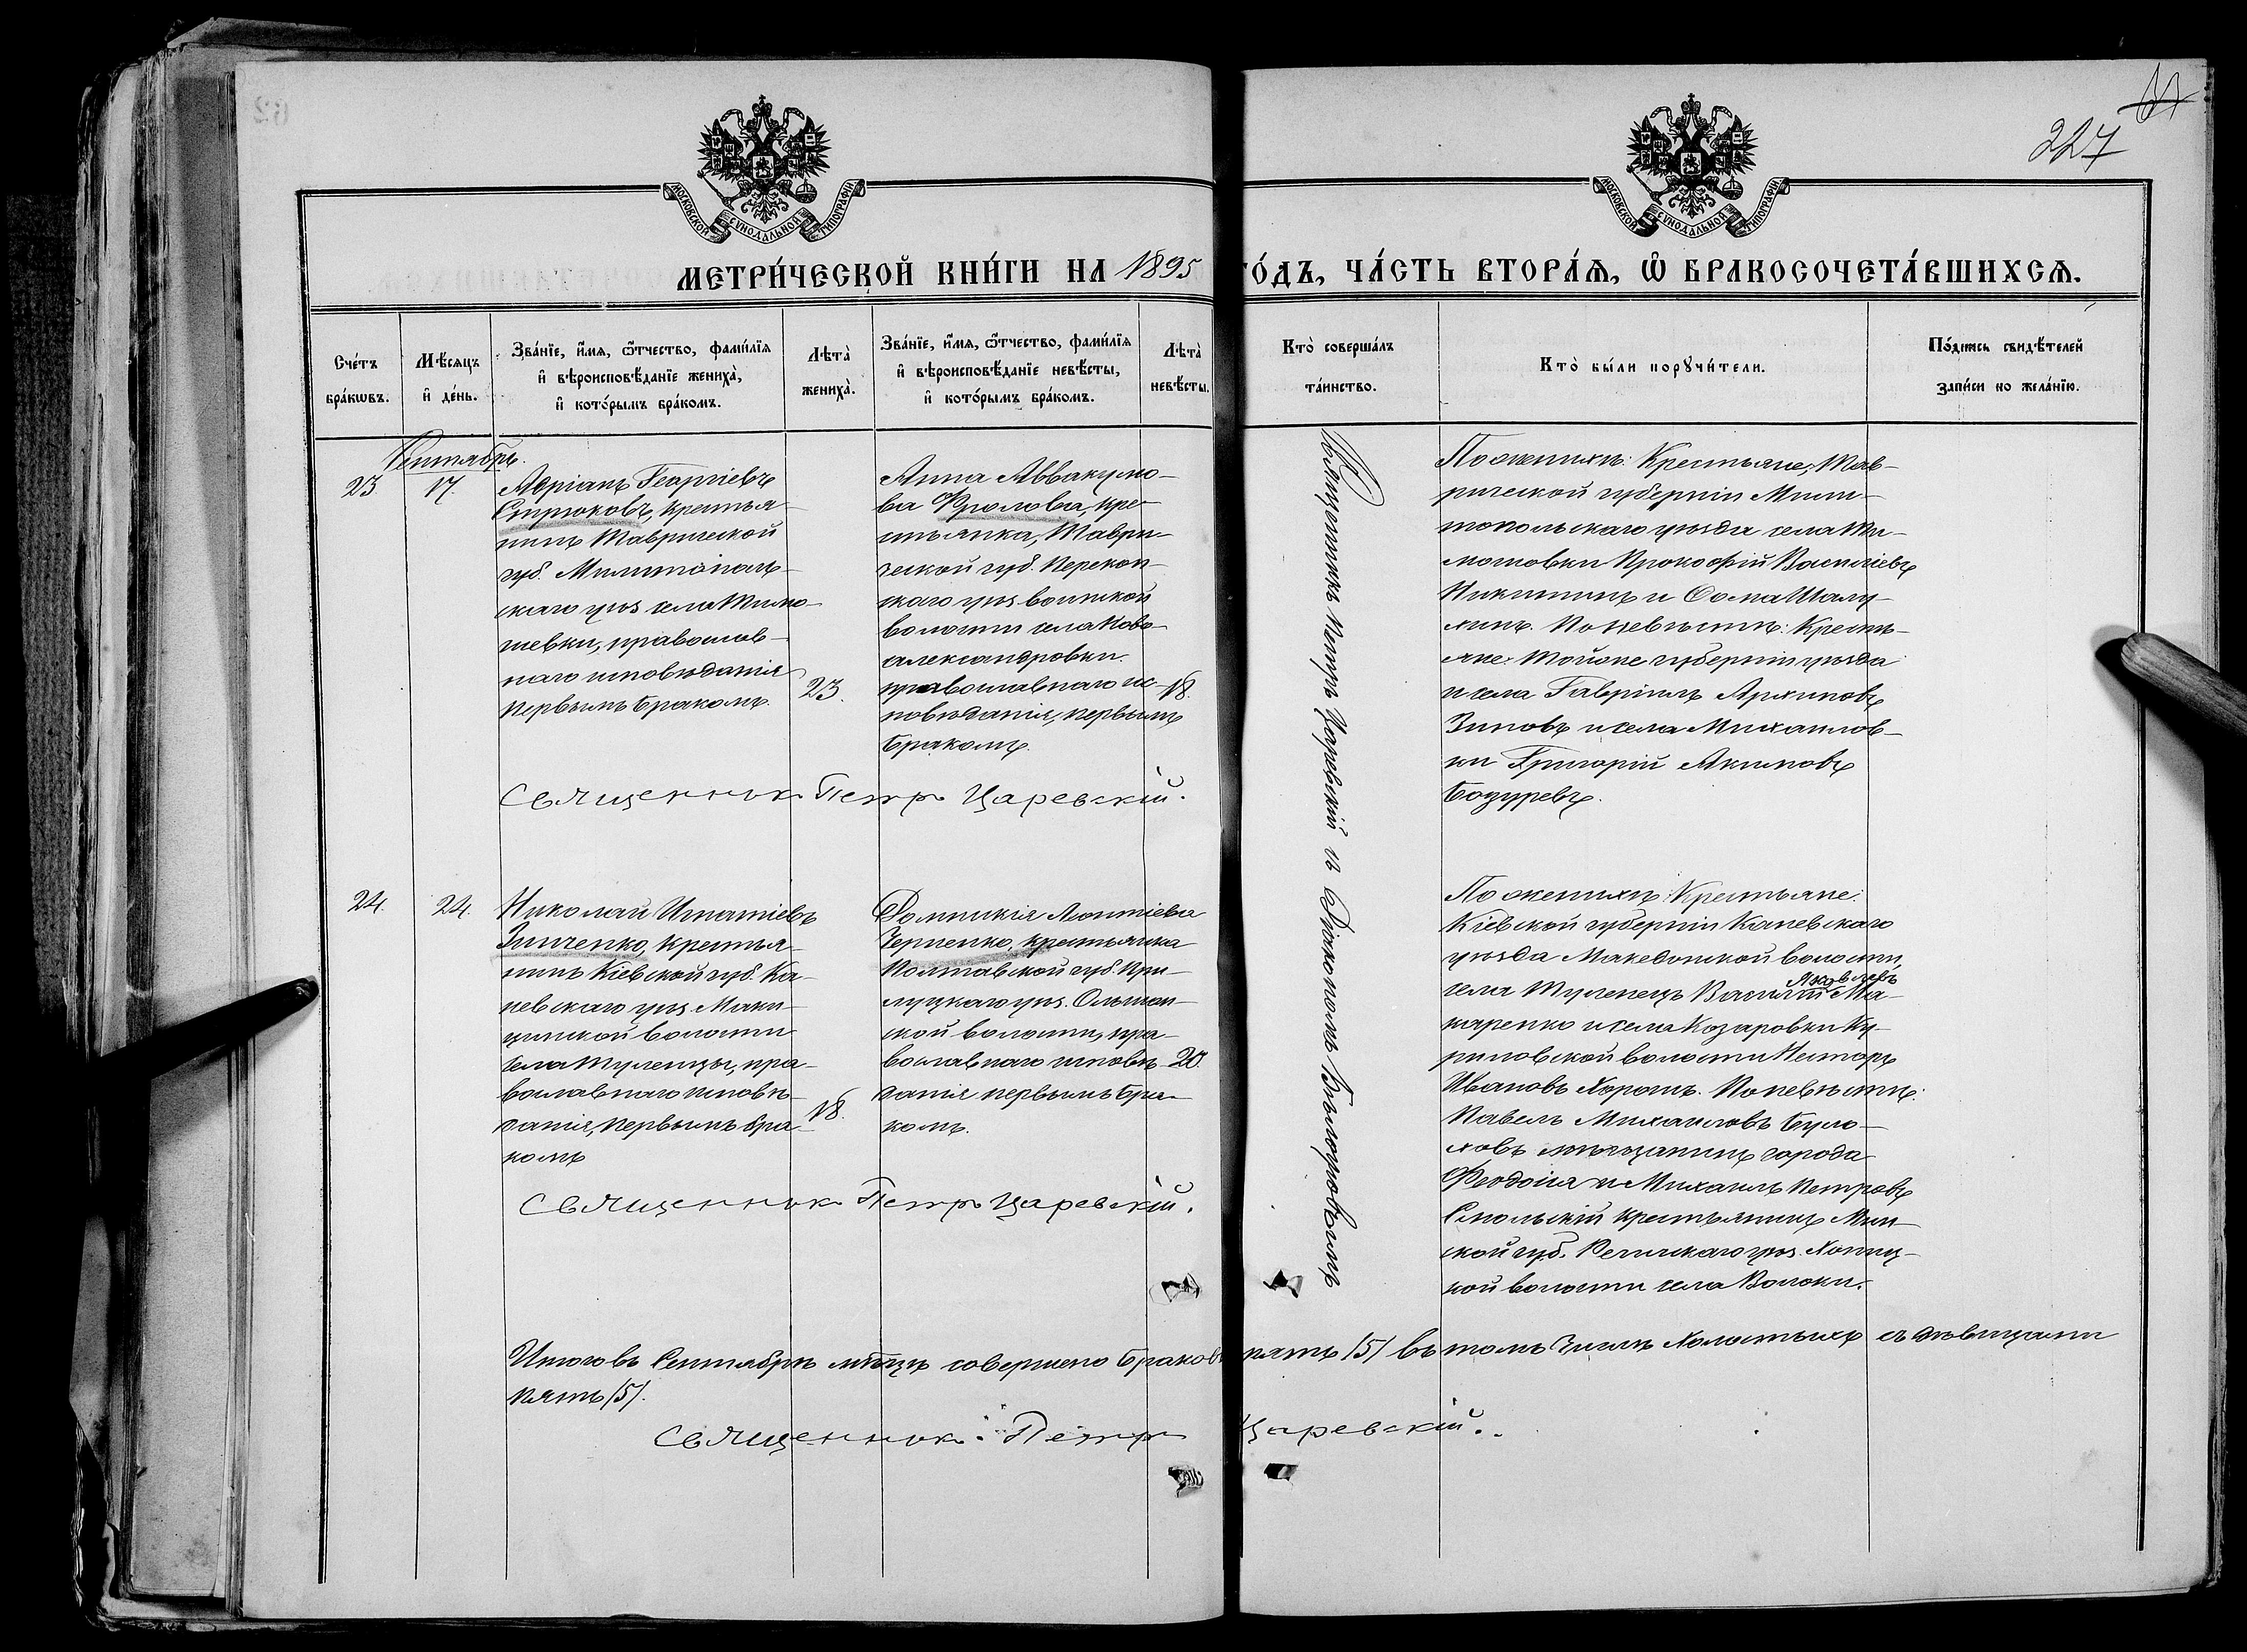 227
МОСКОВСКОЙ СѴНОДАЛЬНОЙ ТИПОГРАФІИ
МОСКОВСКОЙ СѴНОДАЛЬНОЙ ТИПОГРАФІИ
МЕТРИ́ЧЕСКОЙ КНИ́ГИ НА 1895 ГО́ДЪ, ЧА́СТЬ ВТОРА́Я, Ѡ҆ БРАКОСОЧЕТА́ВШИХСЯ.
Сче́тъ бра́кѡвъ.
Мѣ́сяцъ и҆ де́нь.
Зва́нїе, и҆́мя, ѻ҆́тчество, фами́лїя
и҆ вѣроисповѣ́данїе жениха̀,
и҆ кото́рымъ бра́комъ.
Лѣта̀ жениха̀.
Зва́нїе, и҆́мя, ѻ҆́тчество, фами́лїя
и҆ вѣроисповѣ́данїе невѣ́сты,
и҆ кото́рымъ бра́комъ.
Лѣта̀ невѣ́сты.
Кто̀ соверша́лъ
та́инство.
Кто̀ бы́ли порꙋчи́тели.
По́дпись свидѣ́телей
за́писи по жела́нїю.
Сентябрь.
23
17.
Адріанъ Георгіевъ
Стрюковъ, крестья-
нинъ Таврической
губ. Мелитополь-
скаго уѣз села Тимо-
шевки, православ-
наго исповѣданія
первымъ бракомъ.
23.
Анна Аввакумо-
ва Фролова, кре-
стьянка, Таври-
ческой губ. Перекоп-
скаго уѣз воинской
волости села Ново-
александровки.
православнаго ис-
повѣданія, первымъ
бракомъ.
18.
Священникъ Петръ Царевскій и Діакономъ
По женихѣ: Крестьяне, Тав-
рической губерніи Мели-
топольскаго уѣзда села Ти-
мошовки Прокофій Василіевъ
Никитинъ и Сома Шалу-
хинъ. По невѣстѣ: Кресть-
яне: Тойоже губерніи уѣзда
и села Гавріилъ Архиповъ
Зиновъ и села Михаилов-
ки Григорій Акимовъ
Бозуревъ.
Священникъ Петръ Царевскій.
24.
24.
Николай Игнатіевъ
Зинченко, крестья-
нинъ Кіевской губ. Ка-
невскаго уѣз Маки-
донской волости
села Тулинцы, пра-
вославнаго исповѣ-
данія, первымъ бра-
комъ
18.
Домникія Леонтіева
Черненко, крестьянка
Полтавской губ. При-
луцкаго уѣз. Ольшан-
ской волости, пра-
вославнаго исповѣ-
данія первымъ бра-
комъ.
20.
По женихѣ: Крестьяне:
Кіевской губерніи Каневскаго
уѣзда Македонской волости,
села Тулинецъ Василій Яковлевъ Ма-
каренко и села Козаровки Ку-
риловской волости Несторъ
Ивановъ Хорошъ. По невѣстѣ:
Павелъ Михаиловъ Було-
ховъ мѣщанинъ города
Феодосія и Михаилъ Петровъ
Смольскій крестьянинъ Мин-
ской губ. Речицкаго уѣз.
кой волости села Волоки.
Священникъ Петръ Царевскій.
Итого въ Сентябрѣ мѣсяцѣ совершено браковъ пять /5/ въ томъ числѣ Холостыхъ съ дѣвицами
пять /5/.
Священникъ Петръ Царевскій.